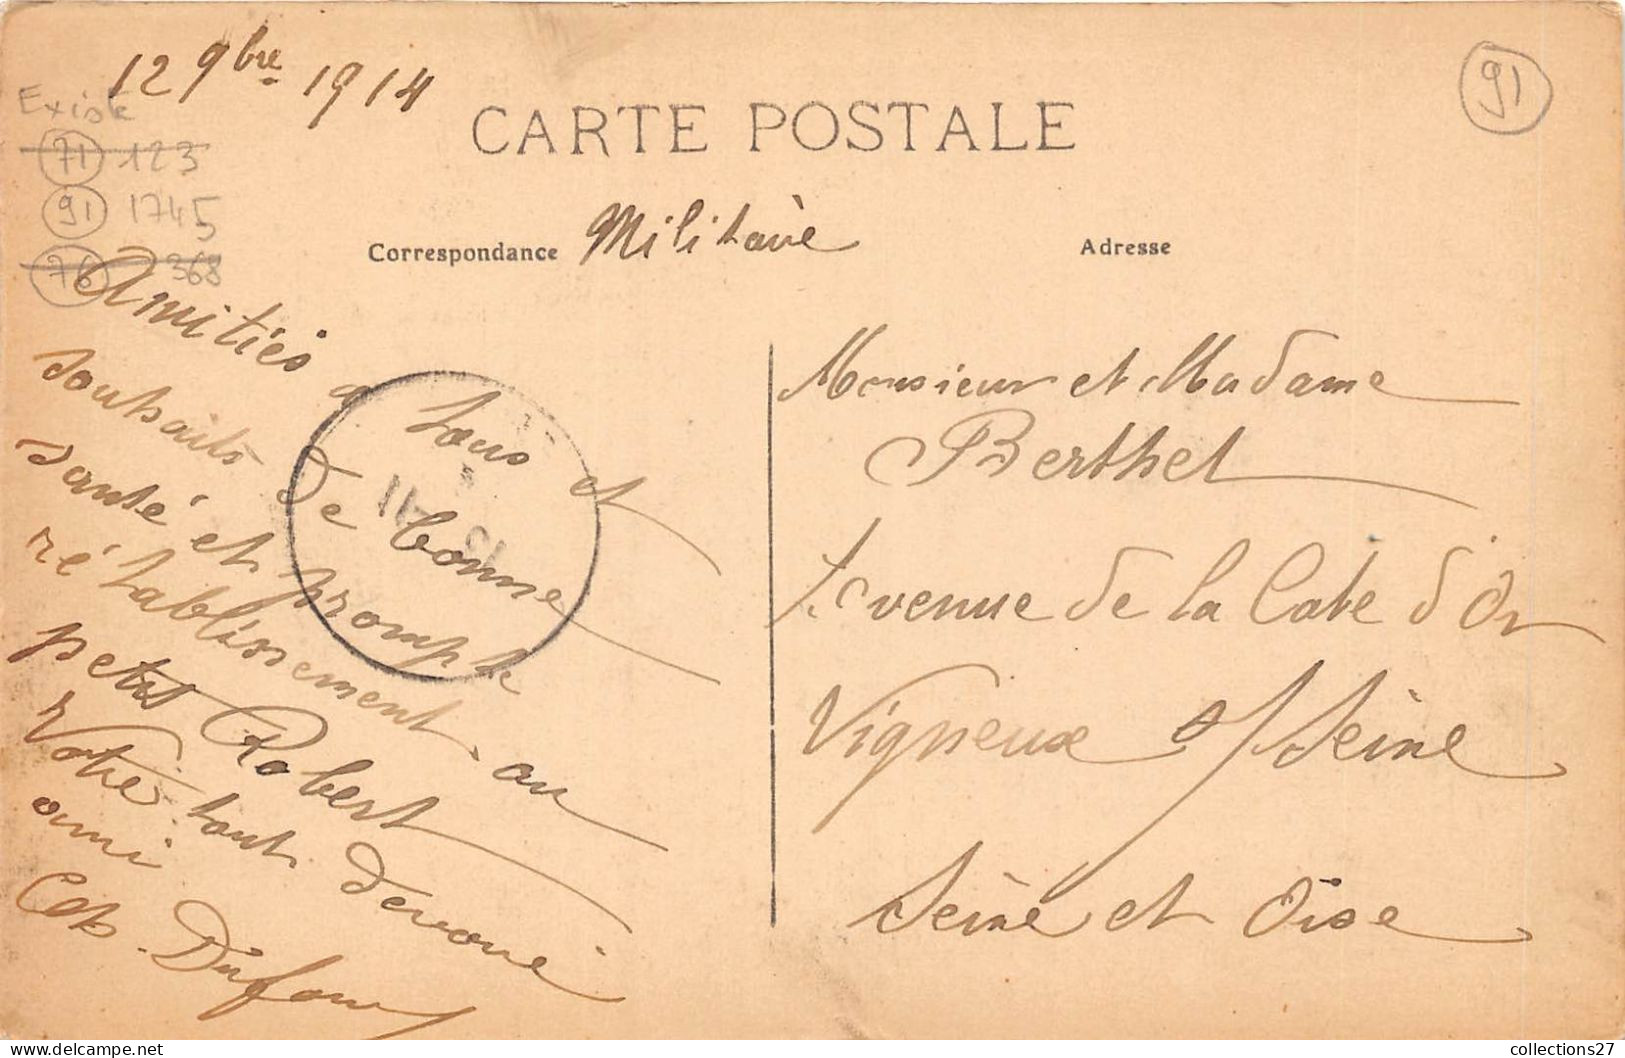 12 9bre 1914
Existe
71 123
91 1745
76 368
91
CARTE POSTALE
Correspondance Militaire
Adresse
Amitiés a tous et
souhaits de bonne
santé et prompte
rétablissement au
petit Robert
Votre tout devoué
ami
Dufour
11
Monsieur et Madame
Berthet
Avenue de la Cote d'Or
Vigneux s/Seine
Seine et Oise
collections27